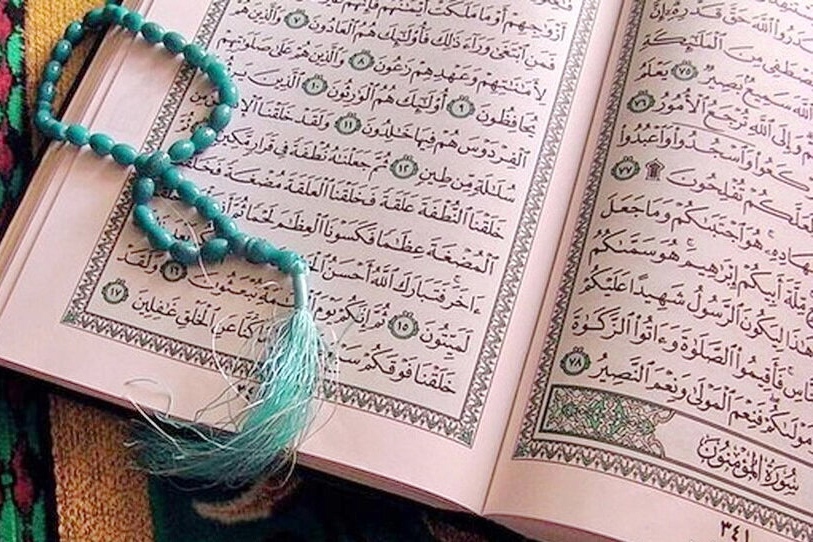 ٱللَّهَ حَقَّ قَدْرِهِۦٓ إِنَّ
مِنَ ٱلْمَلَٰٓئِكَةِ
ٱللَّهَ سَمِيعٌۢ بَصِيرٌ ٧٥ يَعْلَمُ
وَإِلَى ٱللَّهِ تُرْجَعُ ٱلْأُمُورُ ٧٦
وَٱسْجُدُوا۟ وَٱعْبُدُوا۟
لَعَلَّكُمْ تُفْلِحُونَ ۩ ٧٧
هُوَ ٱجْتَبَىٰكُمْ وَمَا جَعَلَ
مِّلَّةَ أَبِيكُمْ إِبْرَٰهِيمَ ۚ هُوَ سَمَّىٰكُمُ
هَٰذَا لِيَكُونَ ٱلرَّسُولُ شَهِيدًا عَلَيْكُمْ
فَأَقِيمُوا۟ ٱلصَّلَوٰةَ وَءَاتُوا۟ ٱلزَّكَوٰةَ
مَوْلَىٰكُمْ ۖ فَنِعْمَ ٱلْمَوْلَىٰ وَنِعْمَ ٱلنَّصِيرُ ٧٨
سُورَةُ المُؤْمِنُونَ
٣٤١
أَزْوَٰجِهِمْ أَوْ مَا مَلَكَتْ أَيْمَٰنُهُمْ فَإِنَّهُمْ غَيْرُ
فَمَنِ ٱبْتَغَىٰ وَرَآءَ ذَٰلِكَ فَأُو۟لَٰٓئِكَ هُمُ ٱلْعَادُونَ ٧ وَٱلَّذِينَ هُمْ
لِأَمَٰنَٰتِهِمْ وَعَهْدِهِمْ رَٰعُونَ ٨ وَٱلَّذِينَ هُمْ عَلَىٰ صَلَوَٰتِهِمْ
يُحَافِظُونَ ٩ أُو۟لَٰٓئِكَ هُمُ ٱلْوَٰرِثُونَ ١٠ ٱلَّذِينَ
ٱلْفِرْدَوْسَ هُمْ فِيهَا خَٰلِدُونَ ١١ وَلَقَدْ خَلَقْنَا مِن
سُلَٰلَةٍ مِّن طِينٍ ١٢ ثُمَّ جَعَلْنَٰهُ نُطْفَةً فِى قَرَارٍ مَّكِينٍ
خَلَقْنَا ٱلنُّطْفَةَ عَلَقَةً فَخَلَقْنَا ٱلْعَلَقَةَ مُضْغَةً
ٱلْمُضْغَةَ عِظَٰمًا فَكَسَوْنَا ٱلْعِظَٰمَ لَحْمًا ثُمَّ
ءَاخَرَ ۚ فَتَبَارَكَ ٱللَّهُ أَحْسَنُ
لَمَيِّتُونَ ١٥ ثُمَّ إِنَّكُمْ يَوْمَ تُبْعَثُونَ ١٦ وَلَقَدْ
خَلَقْنَا فَوْقَكُمْ كُنَّا عَنِ ٱلْخَلْقِ غَٰفِلِينَ ١٧